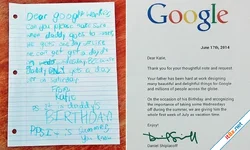 Dear google worker
Can you please make sure
when daddy goes to work
he gets one day off
like he can get a day off
on wednesday. Because
daddy ONLY gets a day
off on saturday
From,
Katie
It is daddy's
BIRTHDAY
P.S.
summer,
you know
Google
June 17th, 2014
Dear Katie,
Thank you for your thoughtful note and request.
Your father has been hard at work designing
many beautiful and delightful things for Google
and millions of people across the globe.
On the occasion of his Birthday, and recognizing
the importance of taking some Wednesdays off
during the summer, we are giving him the whole
first week of July as vacation time.
Enjoy!
Daniel Shiplacoff